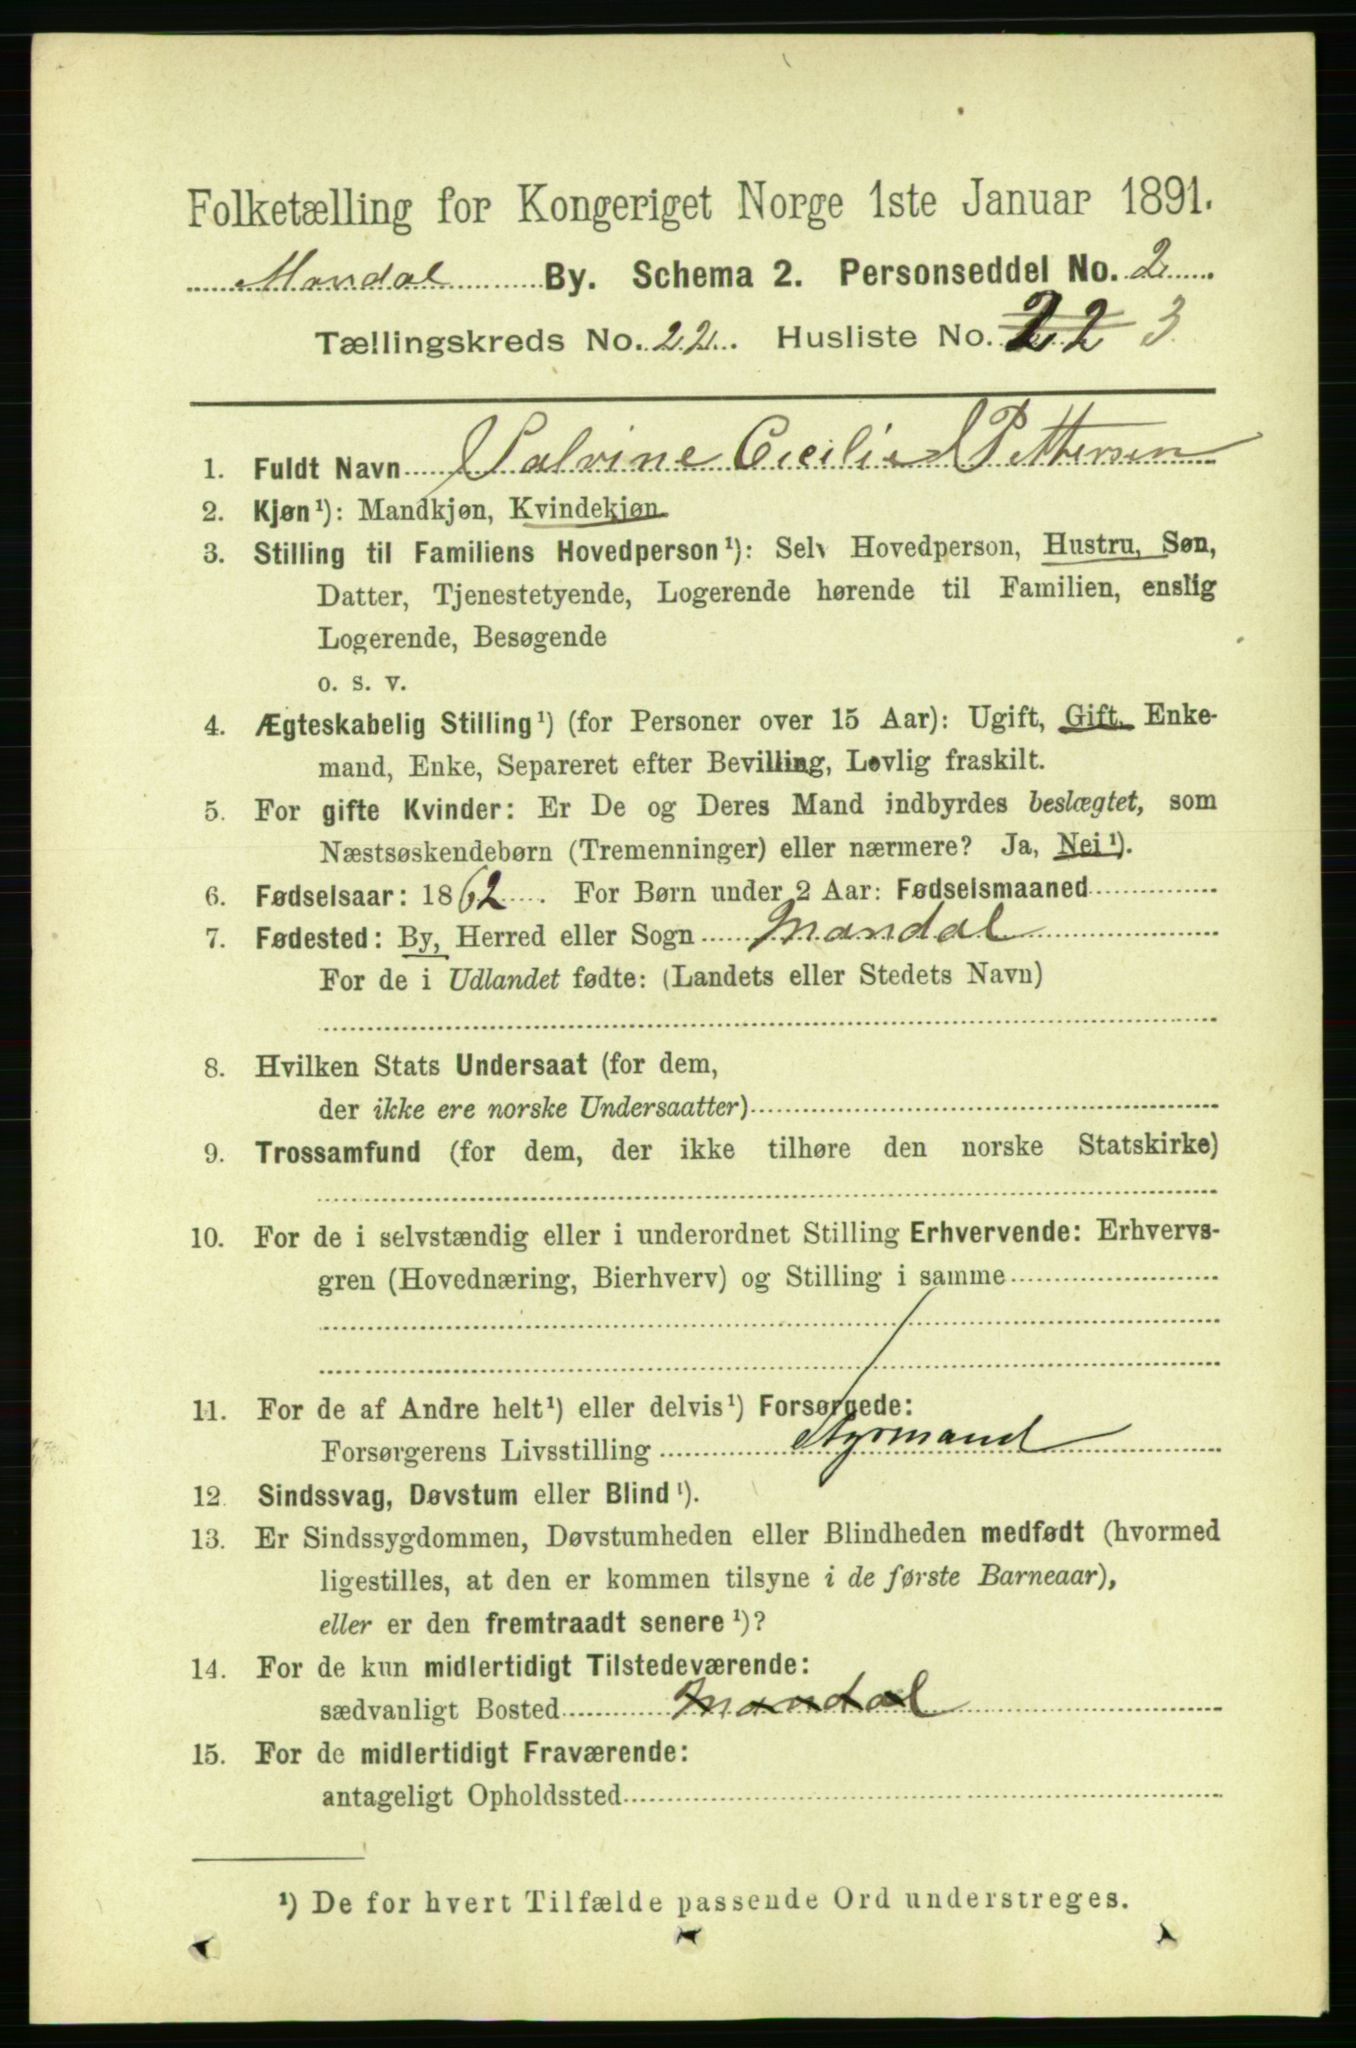 Folketælling for Kongeriget Norge 1ste Januar 1891.
Mandal By. Schema 2. Personseddel No. 2
Tællingskreds No. 22. Husliste No. 22 3
1. Fuldt Navn Salvine Cecilie Pettersen
2. Kjøn¹): Mandkjøn, Kvindekjøn
3. Stilling til Familiens Hovedperson¹): Selv Hovedperson, Hustru, Søn,
Datter, Tjenestetyende, Logerende hørende til Familien, enslig
Logerende, Besøgende
o. s. v.
4. Ægteskabelig Stilling¹) (for Personer over 15 Aar): Ugift, Gift, Enke-
mand, Enke, Separeret efter Bevilling, Lovlig fraskilt.
5. For gifte Kvinder: Er De og Deres Mand indbyrdes beslægtet, som
Næstsøskendebørn (Tremenninger) eller nærmere? Ja, Nei¹).
6. Fødselsaar: 1862. For Børn under 2 Aar: Fødselsmaaned
7. Fødested: By, Herred eller Sogn Mandal
For de i Udlandet fødte: (Landets eller Stedets Navn)
8. Hvilken Stats Undersaat (for dem,
der ikke ere norske Undersaatter)
9. Trossamfund (for dem, der ikke tilhøre den norske Statskirke)
10. For de i selvstændig eller i underordnet Stilling Erhvervende: Erhvervs-
gren (Hovednæring, Bierhverv) og Stilling i samme
11. For de af Andre helt¹) eller delvis¹) Forsørgede:
Forsørgerens Livsstilling Styrmand
12. Sindssvag, Døvstum eller Blind¹).
13. Er Sindssygdommen, Døvstumheden eller Blindheden medfødt (hvormed
ligestilles, at den er kommen tilsyne i de første Barneaar),
eller er den fremtraadt senere¹)?
14. For de kun midlertidigt Tilstedeværende:
sædvanligt Bosted Mandal
15. For de midlertidigt Fraværende:
antageligt Opholdssted
¹) De for hvert Tilfælde passende Ord understreges.